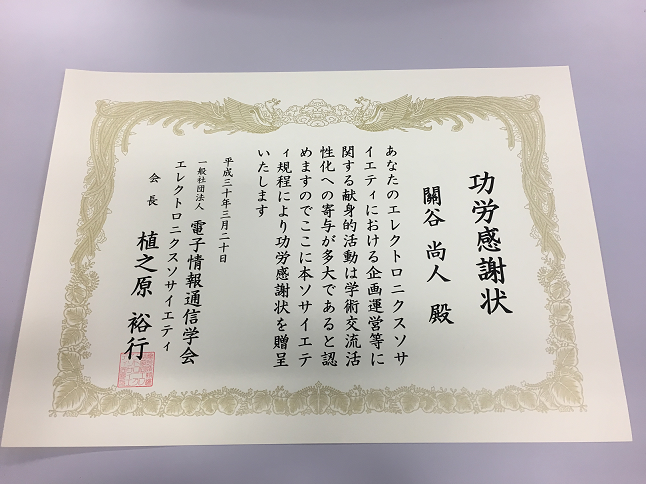 功労感謝状
關谷 尚人 殿
あなたのエレクトロニクスソサ
イエティにおける企画運営等に
関する献身的活動は学術交流活
性化への寄与が多大であると認
めますのでここに本ソサイエテ
ィ規程により功労感謝状を贈呈
いたします
平成三十年三月二十日
一般社団法人 電子情報通信学会
エレクトロニクスソサイエティ
会長 植之原 裕行